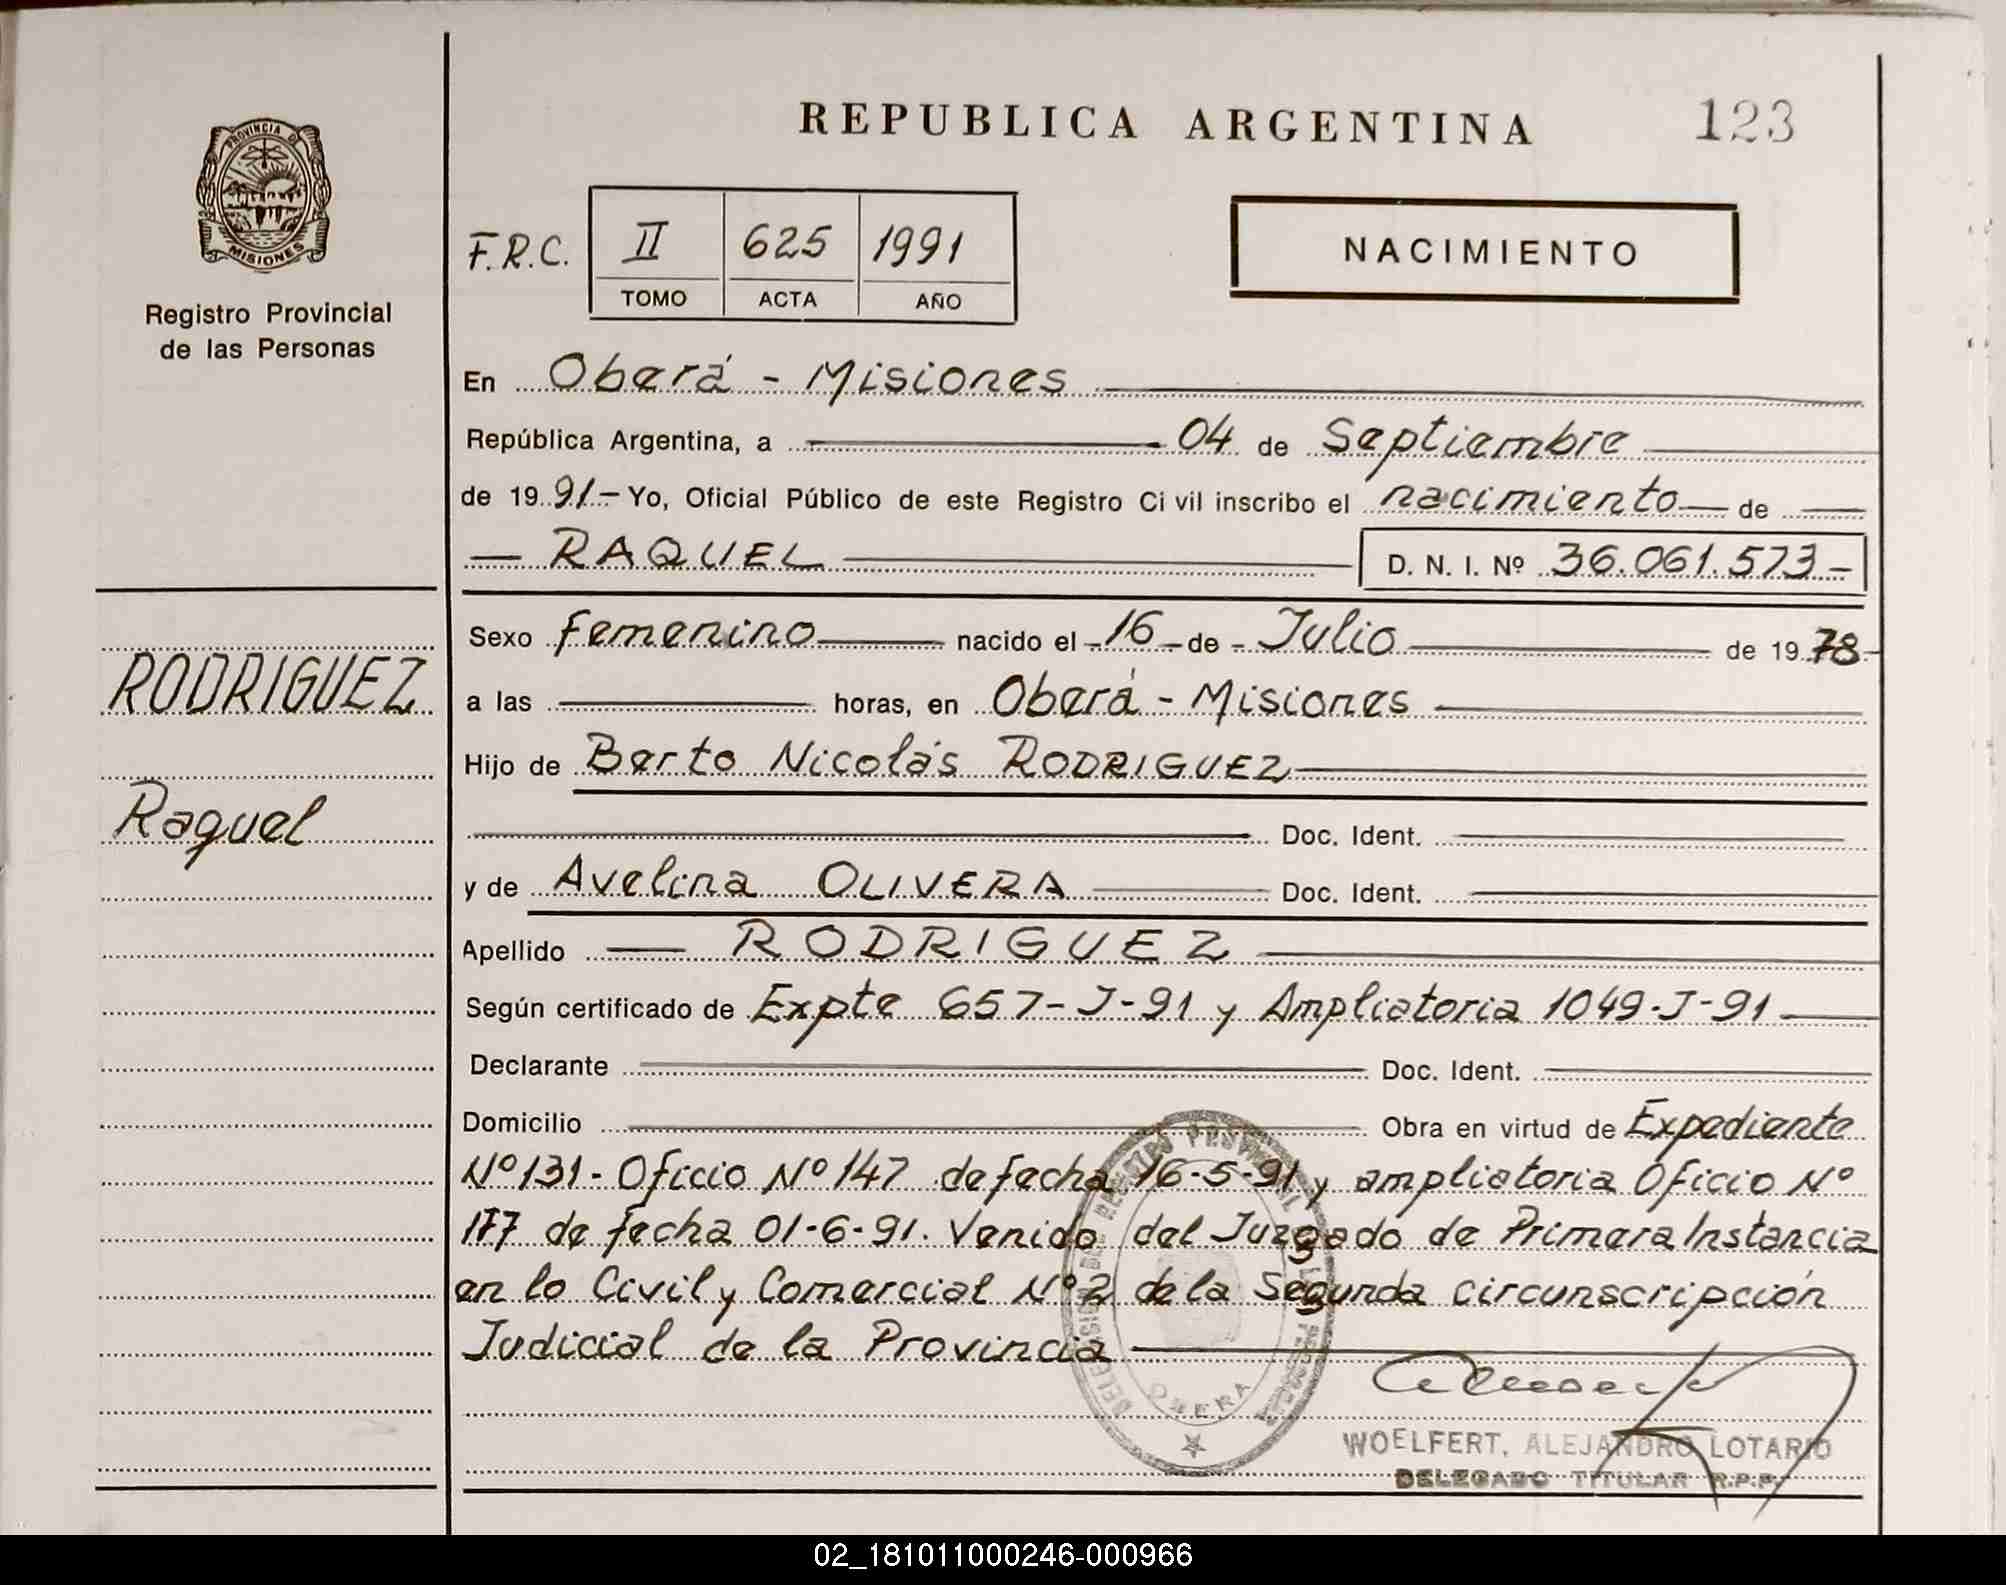 PROVINCIA DE
MISIONES
Registro Provincial
de las Personas
RODRIGUEZ
Raquel
REPUBLICA ARGENTINA 123
F.R.C. II 625 1991
TOMO ACTA AÑO
NACIMIENTO
En Oberá - Misiones
República Argentina, a 04 de Septiembre
de 1991.- Yo, Oficial Público de este Registro Civil inscribo el nacimiento de
RAQUEL D. N. I. Nº 36.061.573-
Sexo femenino nacido el 16 de Julio de 1978
a las horas, en Oberá - Misiones
Hijo de Berto Nicolás RODRIGUEZ
Doc. Ident.
y de Avelina OLIVERA Doc. Ident.
Apellido RODRIGUEZ
Según certificado de Expte 657-J-91 y Ampliatoria 1049-J-91
Declarante Doc. Ident.
Domicilio Obra en virtud de Expediente
Nº 131 - Oficio Nº 147 de fecha 16-5-91 y ampliatoria Oficio Nº
177 de fecha 01-6-91. Venido del Juzgado de Primera Instancia
en lo Civil y Comercial Nº 2 de la Segunda circunscripción
Judicial de la Provincia
OBERA
WOELFERT, ALEJANDRO LOTARIO
DELEGADO TITULAR R.P.P.
02_181011000246-000966